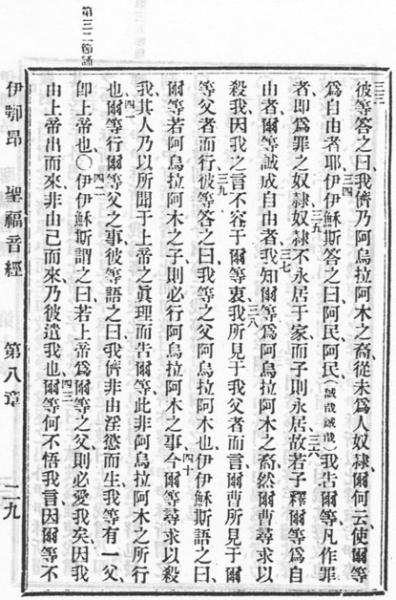 第三二節誦
彼等答之曰、我儕乃阿烏拉阿木之裔、從未爲人奴隸、爾何云、使爾等
爲自由者耶、伊伊穌斯答之曰、阿民阿民(誠哉誠哉)我告爾等、凡作罪
者、即爲罪之奴隸、奴隸不永居于家、而子則永居、故若子釋爾等爲自
由者、爾等誠成自由者、我知爾等爲阿烏拉阿木之裔、然爾曹尋求以
殺我、因我之言不容于爾等衷、我所見于我父者而言、爾曹所見于爾
等父者而行、彼等答之曰、我等之父阿烏拉阿木也、伊伊穌斯語之曰、
爾等若阿烏拉阿木之子、則必行阿烏拉阿木之事、今爾等尋求以殺
我、其人乃以所聞于上帝之眞理而告爾等、此非阿烏拉阿木之所行
也、爾等行爾等父之事、彼等語之曰、我儕非由淫慾而生、我等有一父、
卽上帝也、○伊伊穌斯謂之曰、若上帝爲爾等之父、則必愛我矣、因我
由上帝出而來、非由己而來、乃彼遣我也、爾等何不悟我言、因爾等不
伊鄂昂 聖福音經 第八章 二九